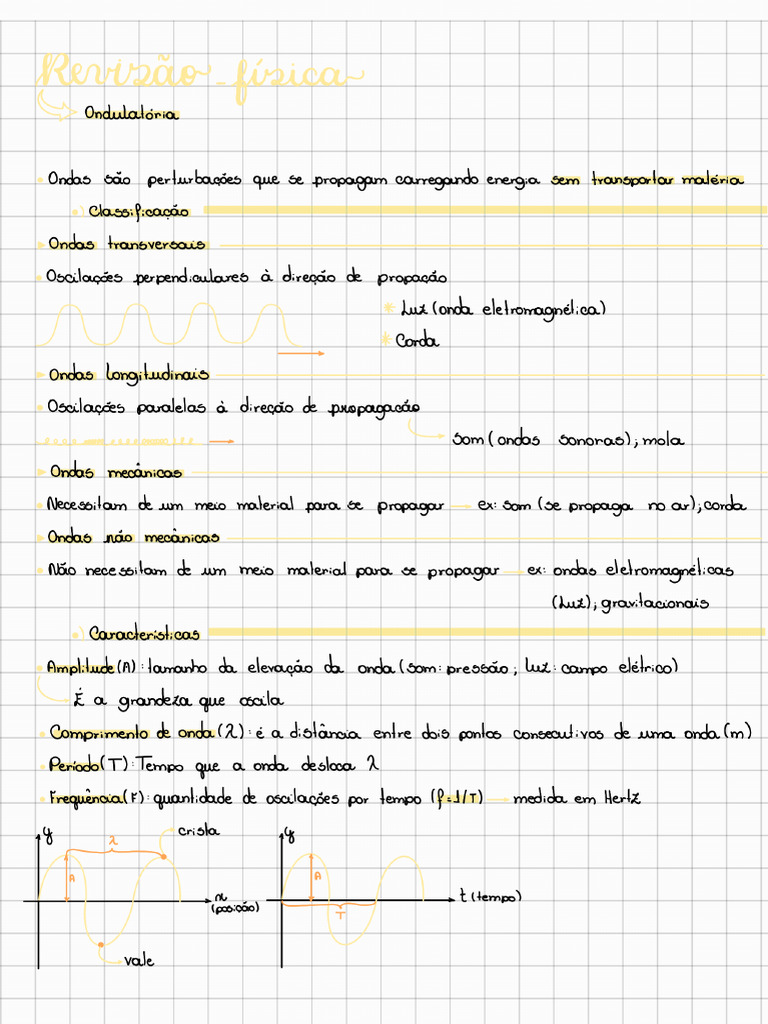 Revisão - física
Ondulatória
• Ondas são perturbações que se propagam carregando energia sem transportar matéria
•) Classificação
Ondas transversais
• Oscilações perpendiculares à direção de propação
* Luz (onda eletromagnética)
* Corda
Ondas longitudinais
• Oscilações paralelas à direção de propagação
Som (ondas sonoras); mola
Ondas mecânicas
• Necessitam de um meio material para se propagar → ex: som (se propaga no ar); corda
Ondas não mecânicas
• Não necessitam de um meio material para se propagar → ex: ondas eletromagnéticas
(Luz); gravitacionais
•) Características
• Amplitude (A): tamanho da elevação da onda (som: pressão; luz: campo elétrico)
É a grandeza que oscila
• Comprimento de onda (λ): é a distância entre dois pontos consecutivos de uma onda (m)
• Período (T): Tempo que a onda desloca λ
• Frequência (F): quantidade de oscilações por tempo (f=1/T) → medida em Hertz
y λ crista y
A A
x (posição) t (tempo)
T
vale